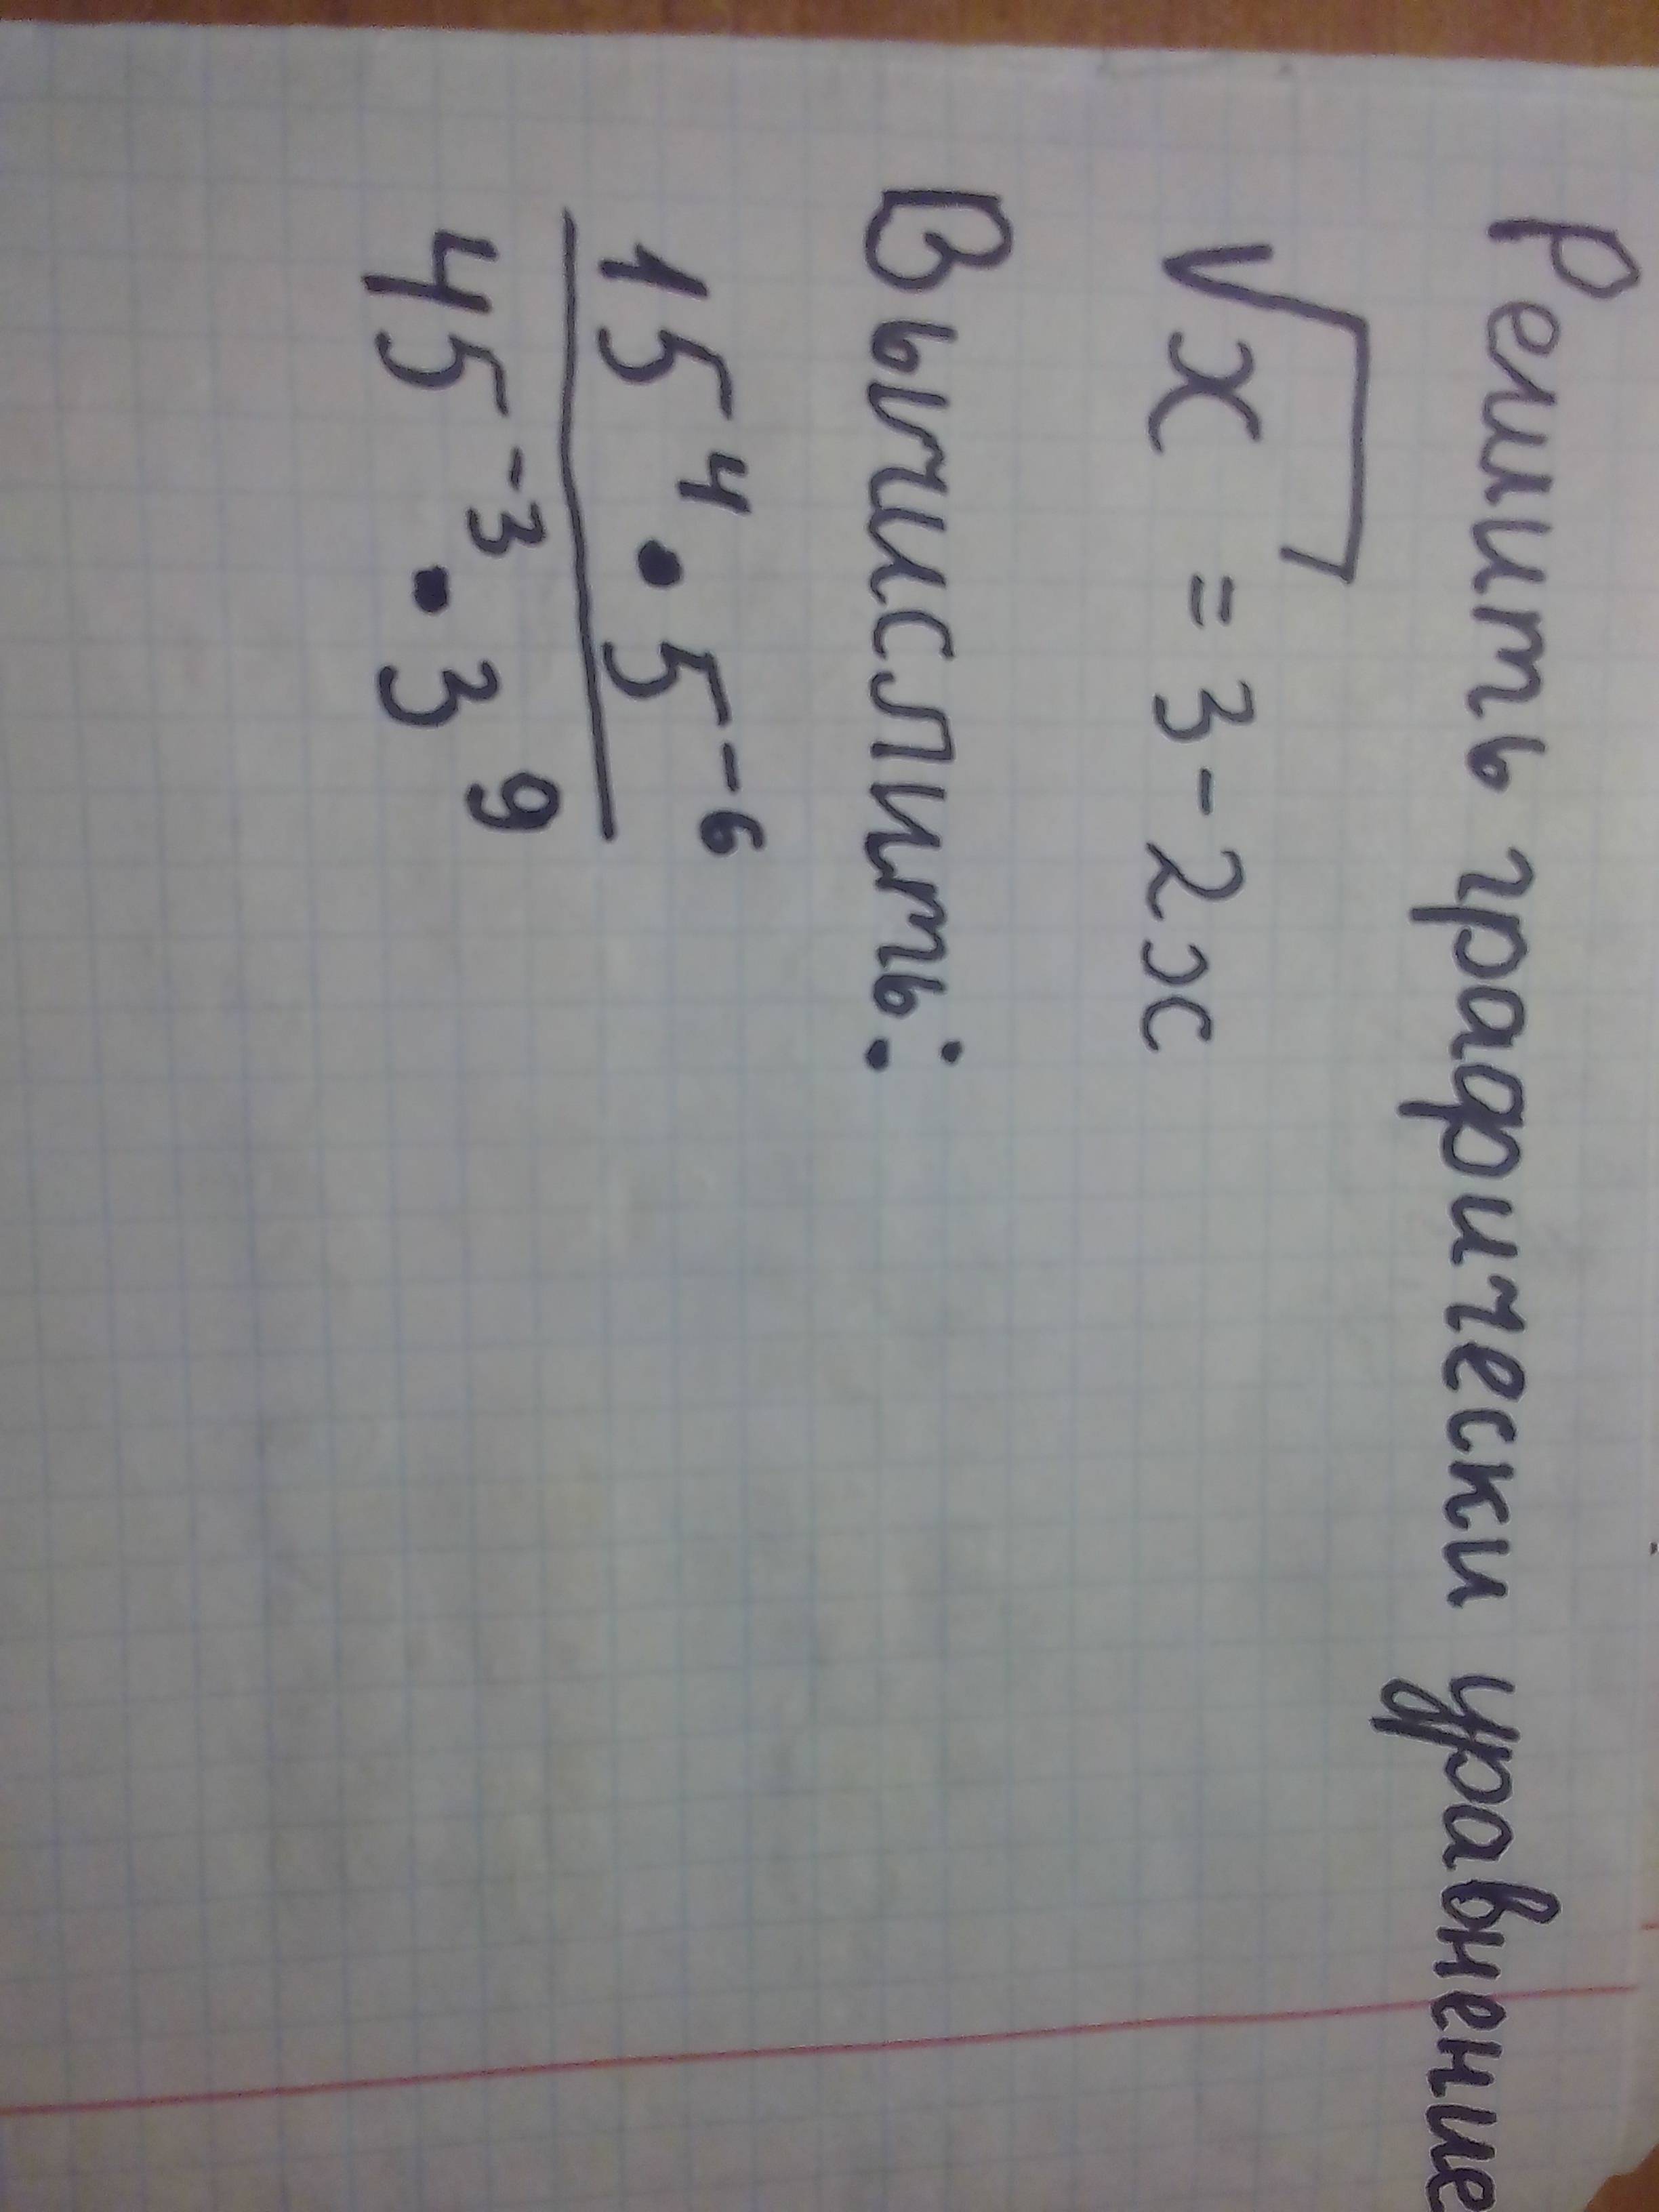 Решить графически уравнение
√x = 3 - 2x
Вычислить:
15⁴ · 5⁻⁶
45⁻³ · 3⁹